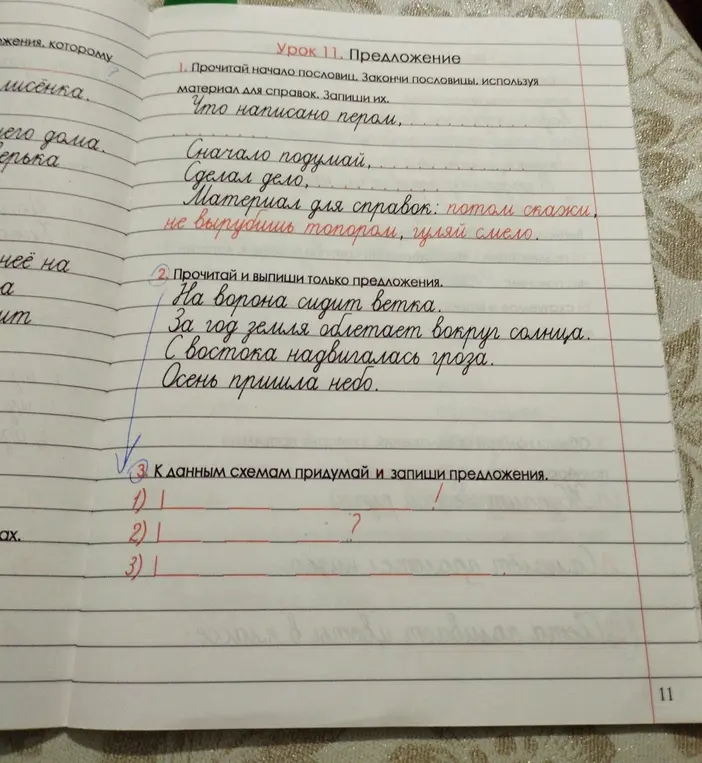 жения, которому
?
лисёнка.
его дома.
ерька
неё на
а
ит
ах.
Урок 11. Предложение
1. Прочитай начало пословиц. Закончи пословицы, используя
материал для справок. Запиши их.
Что написано пером, . . . . . . . .
. . . . . . . .
Сначало подумай, . . . . . . . .
Сделал дело, . . . . . . . .
Материал для справок: потом скажи,
не вырубишь топором, гуляй смело.
2. Прочитай и выпиши только предложения.
На ворона сидит ветка.
За год земля облетает вокруг солнца.
С востока надвигалась гроза.
Осень пришла небо.
3. К данным схемам придумай и запиши предложения.
1) |___ ___ ___ ___ !
2) |___ ___ ___ ?
3) |___ ___ ___ ___ ___ .
11